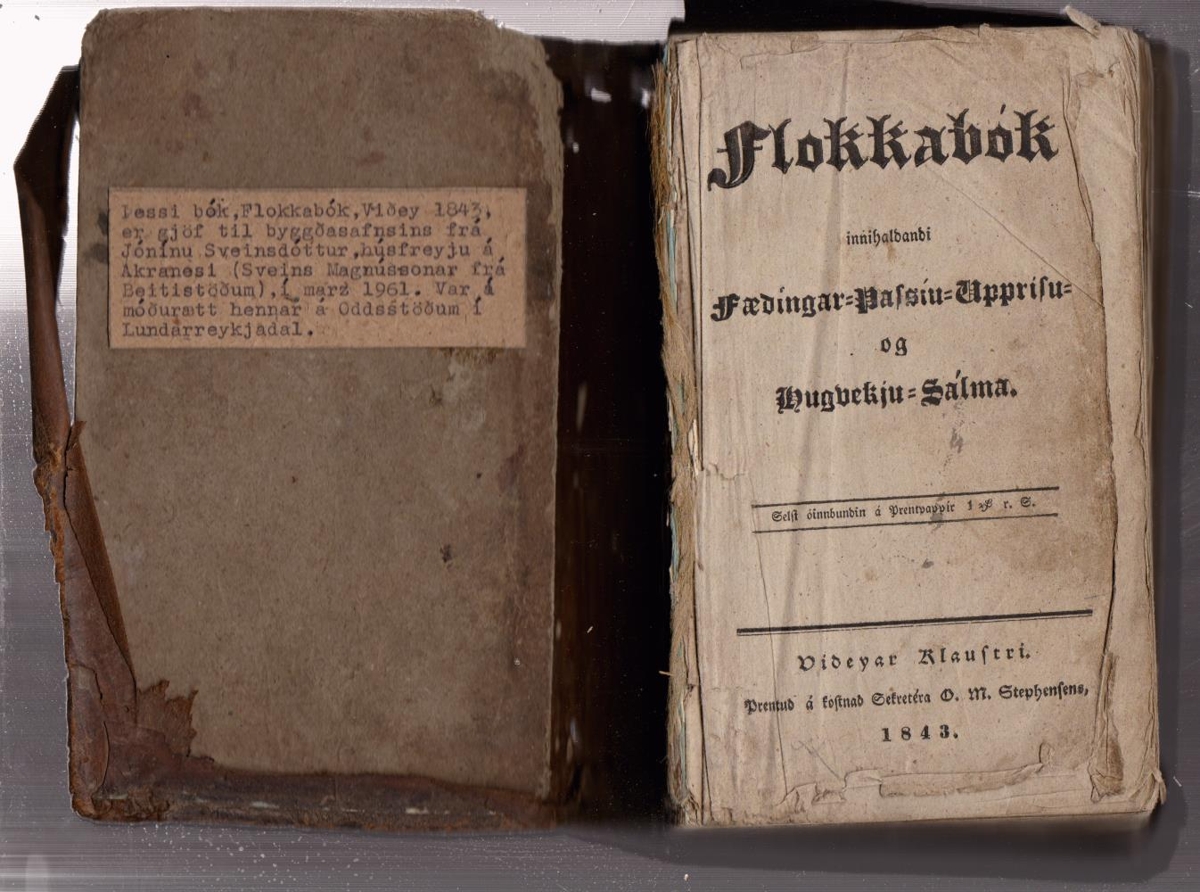 Þessi bók,Flokkabók,Viðey 1843,
er gjöf til byggðasafnsins frá
Jónínu Sveinsdóttur,húsfreyju á
Akranesi (Sveins Magnússonar frá
Beitistöðum),í marz 1961. Var á
móðurætt hennar á Oddsstöðum í
Lundarreykjadal.
Flokkabók
innihaldandi
Fædingar-Passiu-Upprisu-
og
Hugvekju-Sálma.
Selst óinnbundin á Prentpappír 1 rbd. r. S.
Videyar Klaustri.
Prentud á kostnad Sekretéra O. M. Stephensens,
1843.